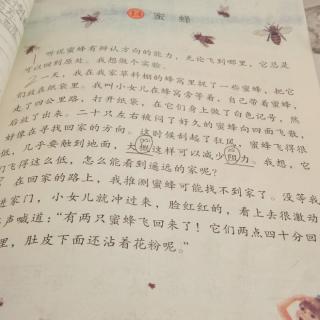 14 蜜蜂
听说蜜蜂有辨认方向的能力，无论飞到哪里，它总是
可以回到原处。我想做个实验。
一天，我在我家草料棚的蜂窝里捉了一些蜜蜂，把它
们放在纸袋里。我叫小女儿在蜂窝旁等着，自己带着蜜蜂，
走了四公里路，打开纸袋，在它们身上做了白色记号，然
后放了出来。二十只左右被闷了好久的蜜蜂向四面飞散，
好像在寻找回家的方向。这时候刮起了狂风，蜜蜂飞得很
低，几乎要触到地面，大概这样可以减少阻力。我想，它
们飞得这么低，怎么能看到遥远的家呢？
在回家的路上，我推测蜜蜂可能找不到家了。没等我
进家门，小女儿就冲过来，脸红红的，看上去很激动
声喊道：“有两只蜜蜂飞回来了！它们两点四十分回
里，肚皮下面还沾着花粉呢。”